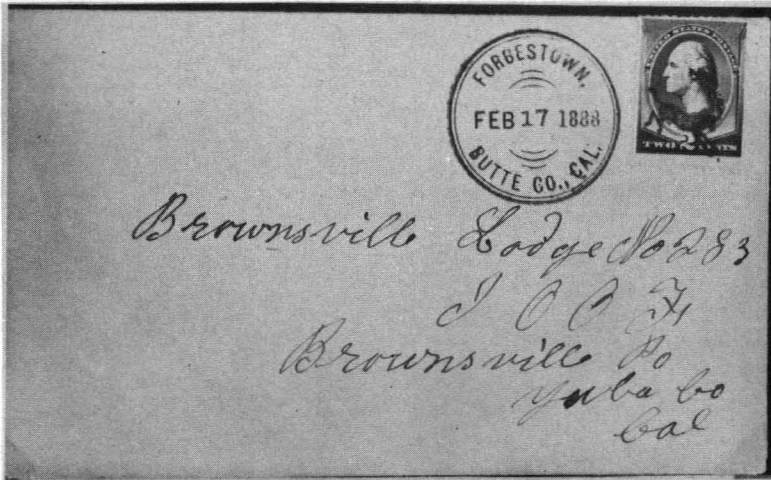 FORBESTOWN.
FEB 17 1888
BUTTE CO., CAL.
UNITED STATES POSTAGE
TWO 2 CENTS
Brownsville Lodge No 283
I O O F
Brownsville Po
Yuba Co
Cal